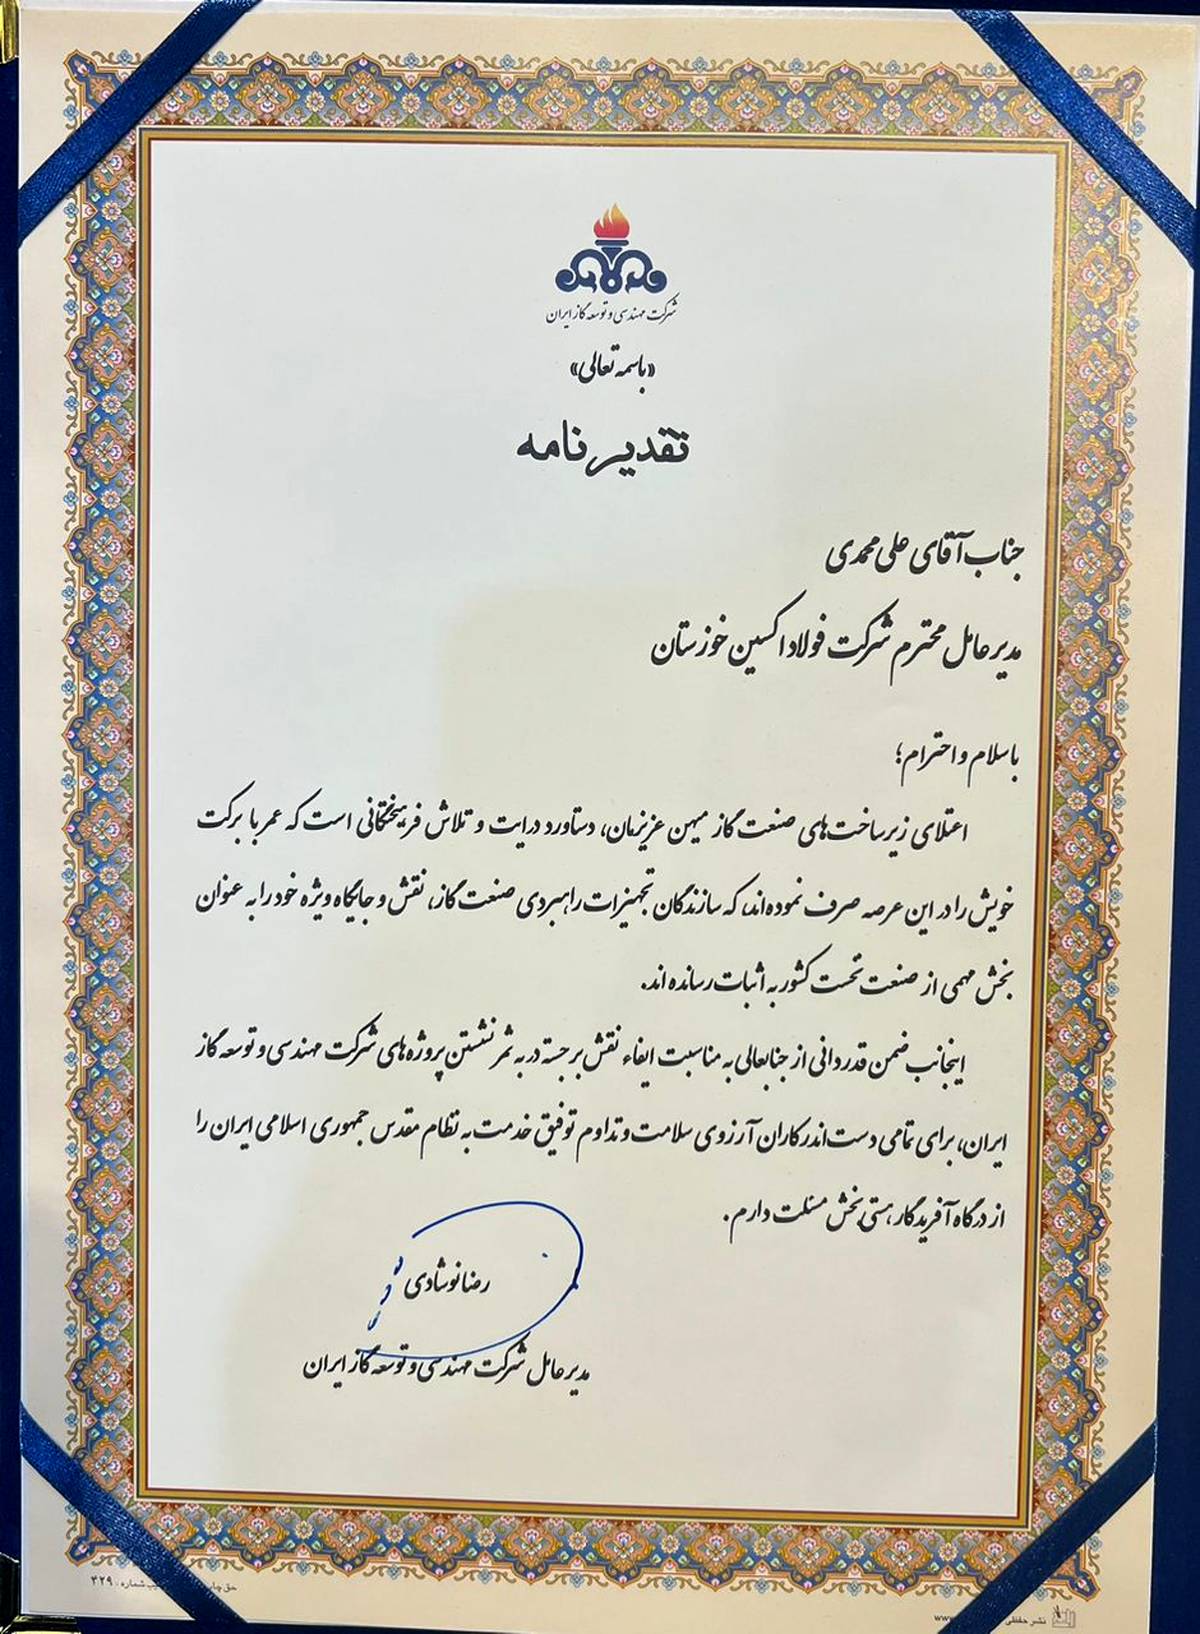 شرکت مهندسی و توسعه گاز ایران
«باسمه تعالی»
تقدیرنامه
جناب آقای علی محمدی
مدیرعامل محترم شرکت فولاد اکسین خوزستان
با سلام و احترام؛
اعتلای زیرساخت‌های صنعت گاز میهن عزیزمان، دستاورد درایت و تلاش فرهیختگانی است که عمر با برکت
خویش را در این عرصه صرف نموده‌اند، که سازندگان تجهیزات راهبردی صنعت گاز، نقش و جایگاه ویژه خود را به عنوان
بخش مهمی از صنعت نخست کشور به اثبات رسانده اند.
اینجانب ضمن قدردانی از جنابعالی به مناسبت ایفاء نقش برجسته در به ثمر نشستن پروژه‌های شرکت مهندسی و توسعه گاز
ایران، برای تمامی دست‌اندرکاران آرزوی سلامت و تداوم توفیق خدمت به نظام مقدس جمهوری اسلامی ایران را
از درگاه آفریدگار هستی بخش مسئلت دارم.
رضا نوشادی
مدیرعامل شرکت مهندسی و توسعه گاز ایران
حق چاپ شماره: ۳۲۹
نشر حفظی www